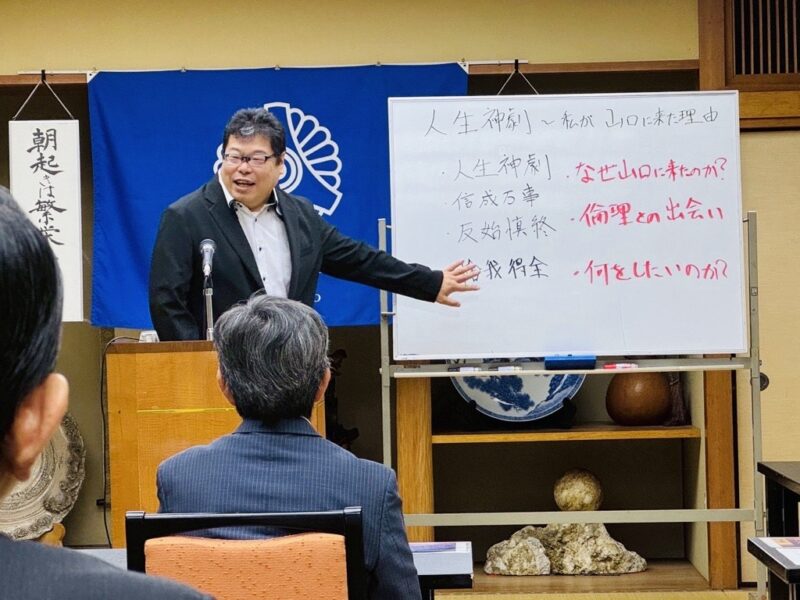 朝起きは繁栄
人生神劇 ～ 私が 山口に来た理由
・人生神劇
信成万事
・反始慎終
我得全
・なぜ山口に来たのか?
・倫理との出会い
・何をしたいのか?